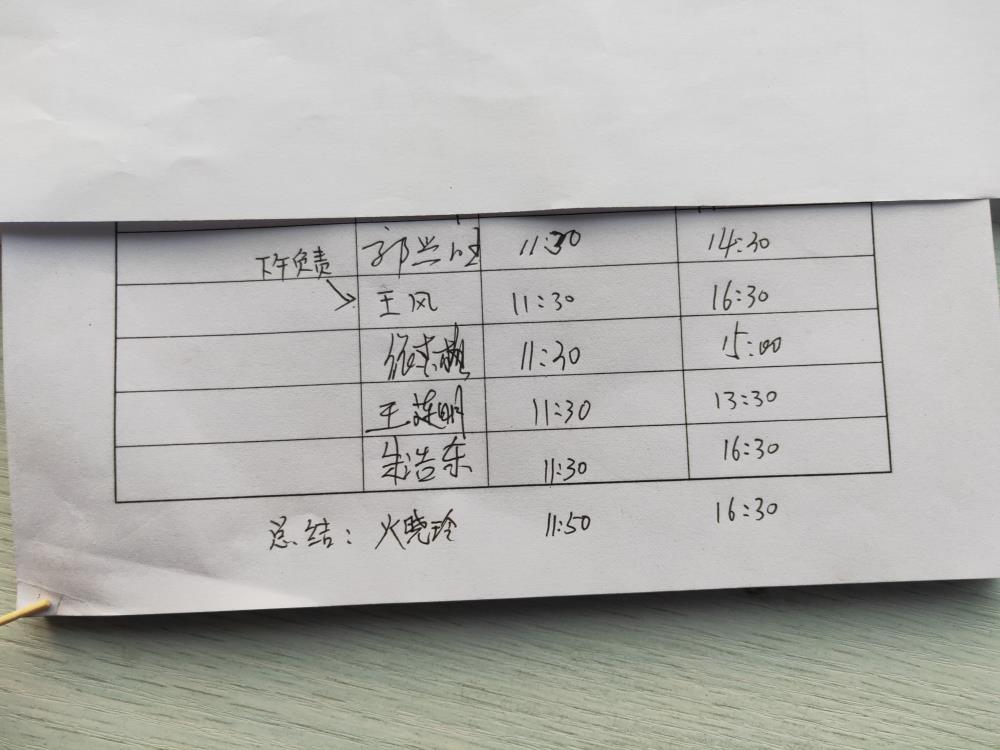 郭兴旺 11:30 14:30
下午负责
王风 11:30 16:30
11:30 15:00
王莲明 11:30 13:30
朱浩东 11:30 16:30
总结：火晓玲 11:50 16:30